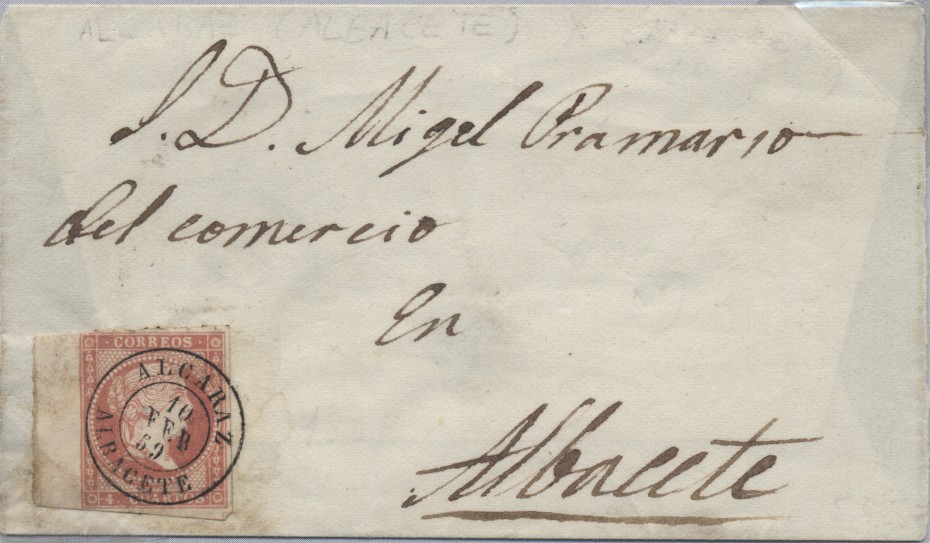 ALCARAZ (ALBACETE)
S. D. Migel Pramario
del comercio
En
Albacete
CORREOS
ALCARAZ
10
FEB
59
ALBACETE
4. CUARTOS